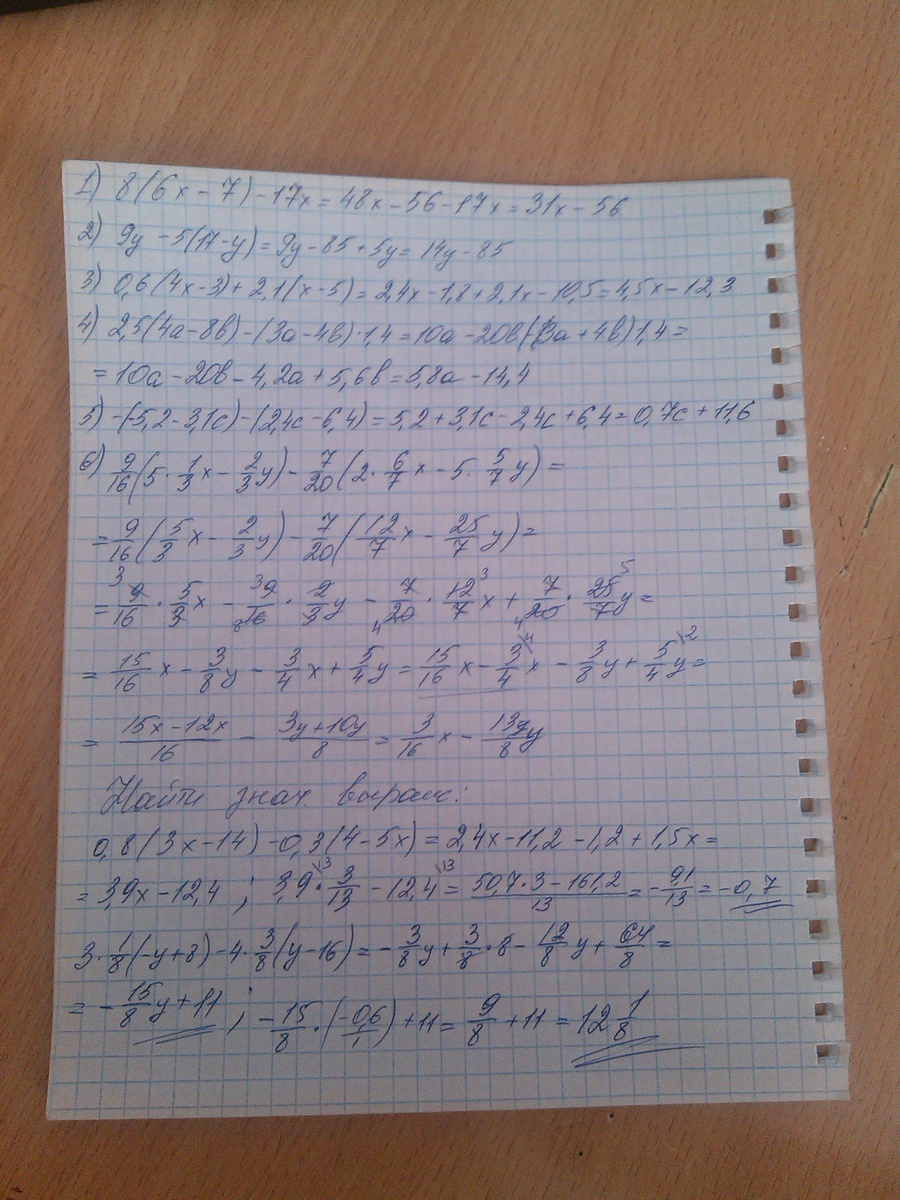 1) 8(6x-7)-17x=48x-56-17x=31x-56
2) 9y-5(17-y)=9y-85+5y=14y-85
3) 0,6(4x-3)+2,1(x-5)=2,4x-1,8+2,1x-10,5=4,5x-12,3
4) 2,5(4a-8в)-(3a-4в)·1,4=10a-20в(-3a+4в)1,4=
=10a-20в-4,2a+5,6в=5,8a-14,4
5) -(-5,2-3,1c)-(2,4c-6,4)=5,2+3,1c-2,4c+6,4=0,7c+11,6
6) 9/16(5·1/3x-2/3y)-7/20(2·6/7x-5·5/7y)=
=9/16(5/3x-2/3y)-7/20(12/7x-25/7y)=
=9/16·5/3x-9/16·2/3y-7/20·12/7x+7/20·25/7y=
=15/16x-3/8y-3/4x+5/4y=15/16x-3/4x-3/8y+5/4y=
=15x-12x/16-3y+10y/8=3/16x-13y/8y
Найти знач выраж:
0,8(3x-14)-0,3(4-5x)=2,4x-11,2-1,2+1,5x=
=3,9x-12,4; 3,9·3/13-12,4=50,7·3-161,2/13=-91/13=-0,7
3·1/8(-y+8)-4·3/8(y-16)=-3/8y+3/8·8-12/8y+64/8=
=-15/8y+11; -15/8·(-0,6/1)+11=9/8+11=12 1/8